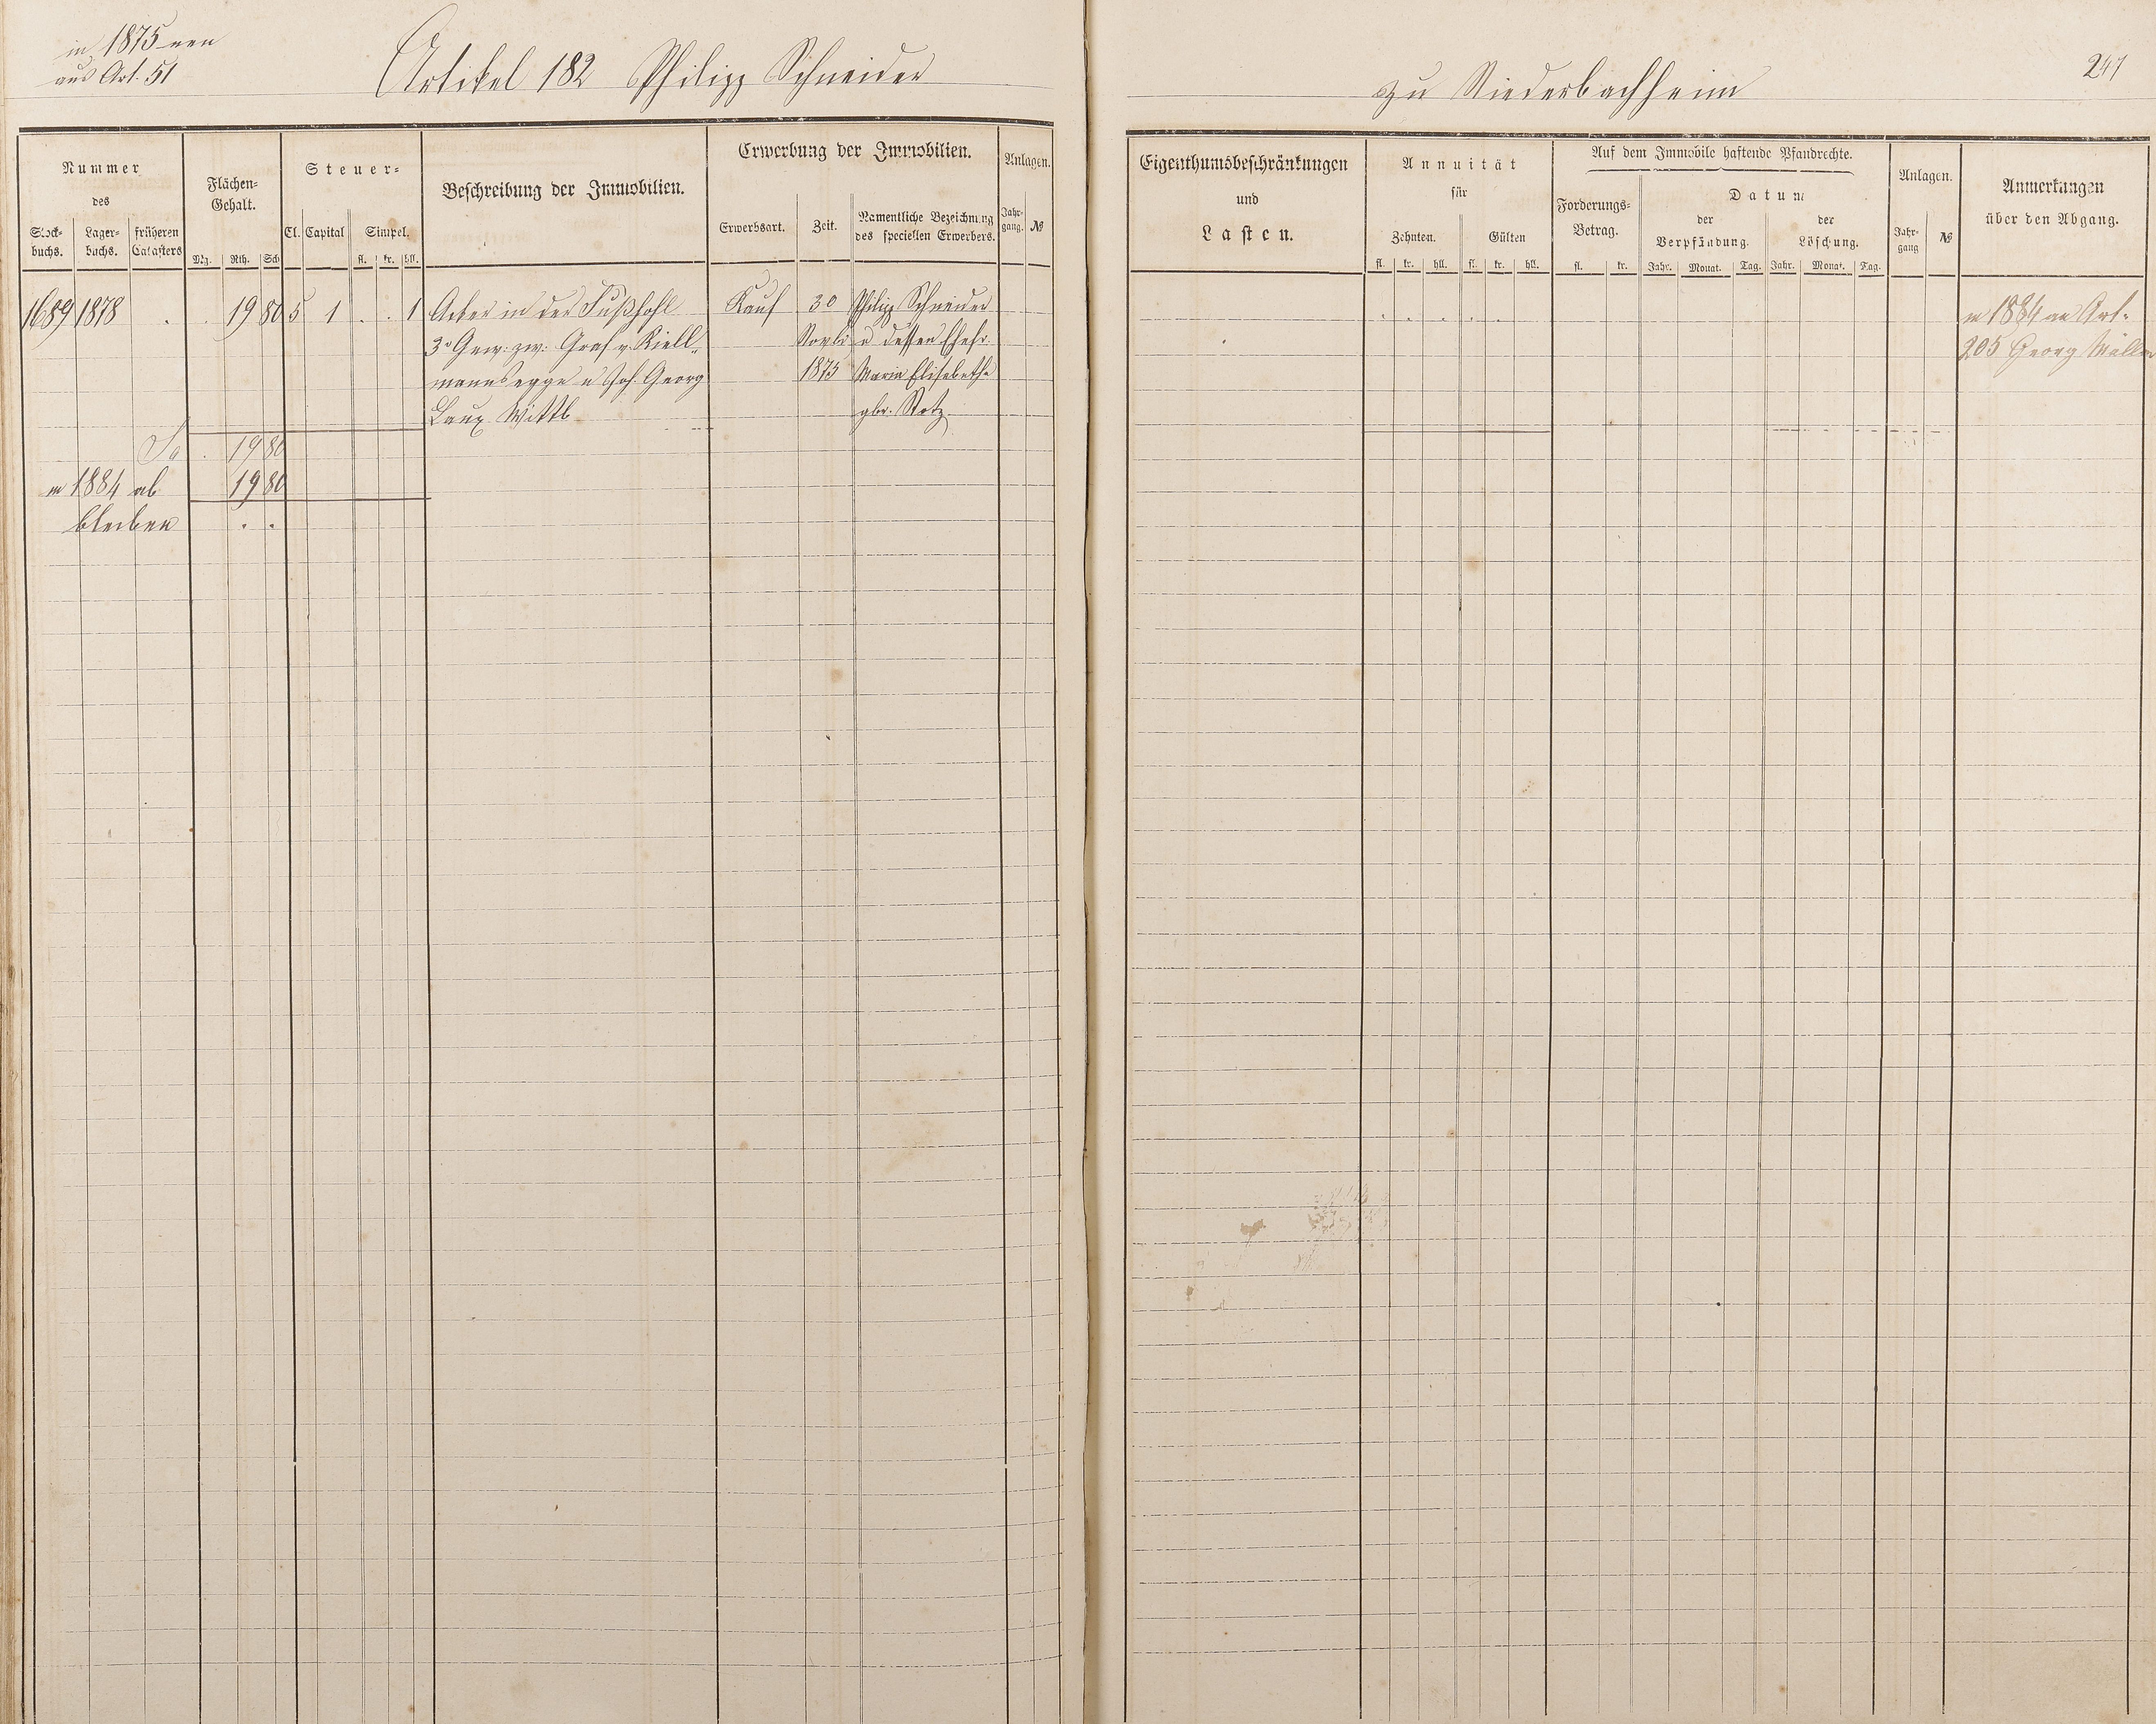 in 1875 neu
aus Art. 51
Artikel 182 Philipp Schneider
zu Niederbachheim
247
Nummer
des
Stock-
buchs.
Lager-
buchs.
früheren
Catasters
Flächen-
Gehalt.
Mg. Rth. Sch
Steuer-
Cl. Capital Simpel.
fl. kr. hll.
Beschreibung der Immobilien.
Erwerbung der Immobilien.
Erwerbsart. Zeit.
Namentliche Bezeichnung
des speciellen Erwerbers.
Anlagen.
Jahr-
gang.
№
Eigenthumsbeschränkungen
und
Lasten.
Annuität
für
Zehnten. Gülten
fl. kr. hll. fl. kr. hll.
Auf dem Immobile haftende Pfandrechte.
Forderungs-
Betrag.
fl. kr.
Datum
der
Verpfändung.
der
Löschung.
Jahr. Monat. Tag. Jahr. Monat. Tag.
Anlagen.
Jahr-
gang
№
Anmerkungen
über den Abgang.
1689 1878 . . 19 80 5 1 . . 1 Acker in der Fußhohl Kauf 30 Philipp Schneider
3r Gew: zw: Graf v. Kiell- Novbr u dessen Ehefr.
mannsegge u Joh. Georg 1875 Maria Elisabetha
Laux Wittb gbr. Stotz
Sa . 19 80
in 1884 ab 19 80
bleiben . .
in 1884 an Art.
205 Georg Müller